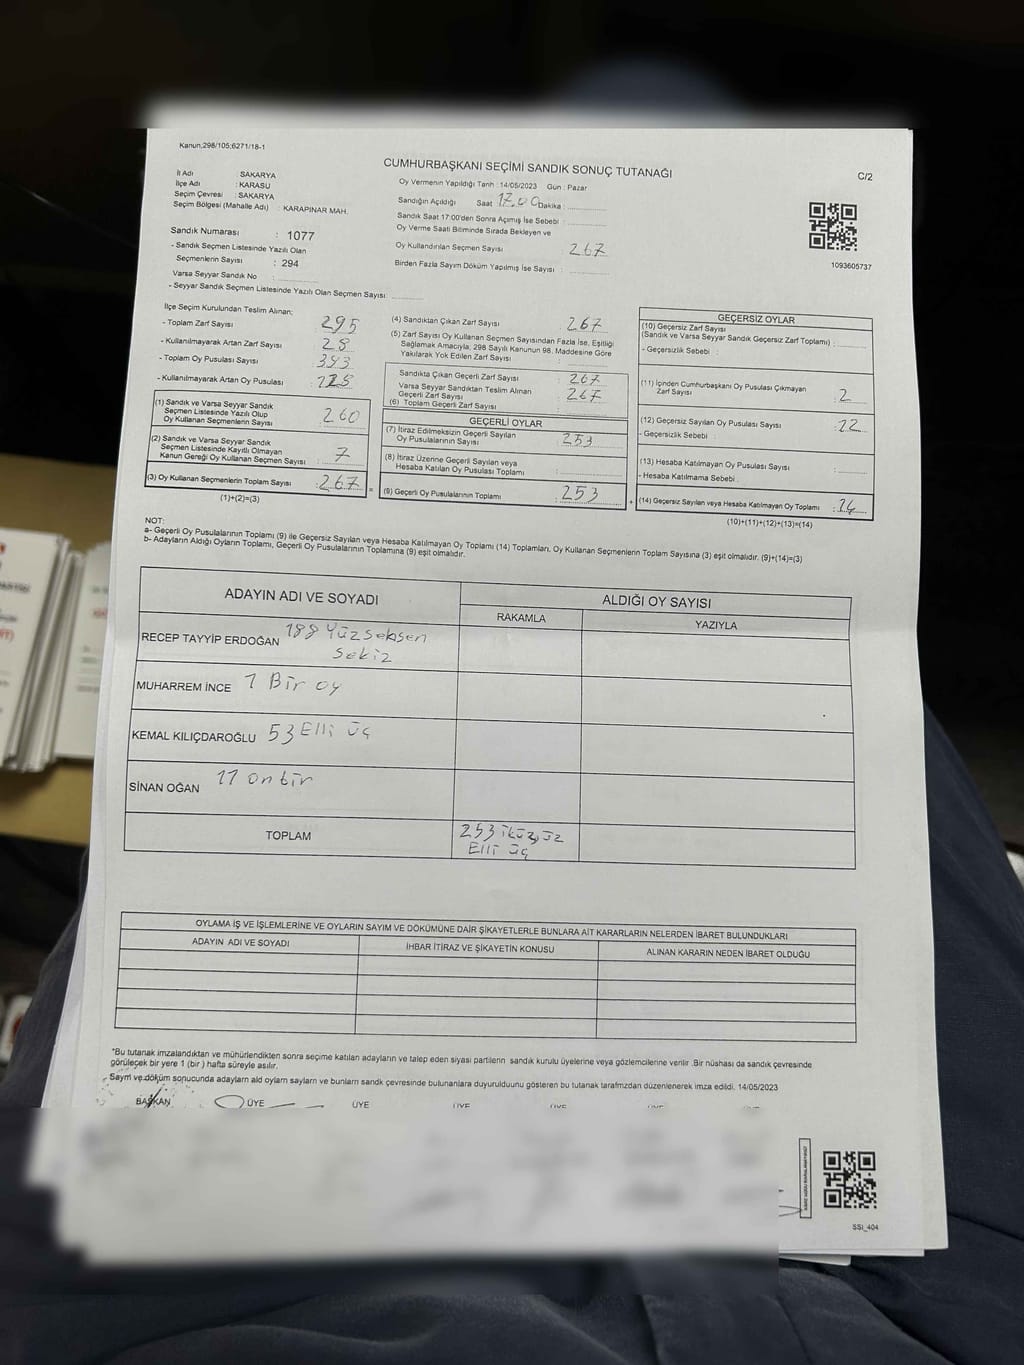 Kanun,298/105;6271/18-1
CUMHURBAŞKANI SEÇİMİ SANDIK SONUÇ TUTANAĞI
C/2
İl Adı : SAKARYA
İlçe Adı : KARASU
Seçim Çevresi : SAKARYA
Seçim Bölgesi (Mahalle Adı) : KARAPINAR MAH.
Sandık Numarası : 1077
- Sandık Seçmen Listesinde Yazılı Olan
Seçmenlerin Sayısı : 294
Varsa Seyyar Sandık No :
- Seyyar Sandık Seçmen Listesinde Yazılı Olan Seçmen Sayısı:
Oy Vermenin Yapıldığı Tarih : 14/05/2023 Gün : Pazar
Sandığın Açıldığı Saat 17.00 Dakika :
Sandık Saat 17:00'den Sonra Açımış İse Sebebi :
Oy Verme Saati Bitiminde Sırada Bekleyen ve
Oy Kullandırılan Seçmen Sayısı 267
Birden Fazla Sayım Döküm Yapılmış İse Sayısı :
1093605737
İlçe Seçim Kurulundan Teslim Alınan;
- Toplam Zarf Sayısı 295
- Kullanılmayarak Artan Zarf Sayısı : 28
- Toplam Oy Pusulası Sayısı : 393
- Kullanılmayarak Artan Oy Pusulası :
(1) Sandık ve Varsa Seyyar Sandık
Seçmen Listesinde Yazılı Olup
Oy Kullanan Seçmenlerin Sayısı : 260
(2) Sandık ve Varsa Seyyar Sandık
Seçmen Listesinde Kayıtlı Olmayan
Kanun Gereği Oy Kullanan Seçmen Sayısı : 7
(3) Oy Kullanan Seçmenlerin Toplam Sayısı : 267
(1)+(2)=(3)
(4) Sandıktan Çıkan Zarf Sayısı : 267
(5) Zarf Sayısı Oy Kullanan Seçmen Sayısından Fazla İse, Eşitliği
Sağlamak Amacıyla, 298 Sayılı Kanunun 98. Maddesine Göre
Yakılarak Yok Edilen Zarf Sayısı :
Sandıkta Çıkan Geçerli Zarf Sayısı : 267
Varsa Seyyar Sandıktan Teslim Alınan
Geçerli Zarf Sayısı : 267
(6) Toplam Geçerli Zarf Sayısı :
GEÇERLİ OYLAR
(7) İtiraz Edilmeksizin Geçerli Sayılan
Oy Pusulalarının Sayısı : 253
(8) İtiraz Üzerine Geçerli Sayılan veya
Hesaba Katılan Oy Pusulası Toplamı :
=
(9) Geçerli Oy Pusulalarının Toplamı : 253
+
GEÇERSİZ OYLAR
(10) Geçersiz Zarf Sayısı
(Sandık ve Varsa Seyyar Sandık Geçersiz Zarf Toplamı) :
- Geçersizlik Sebebi :
(11) İçinden Cumhurbaşkanı Oy Pusulası Çıkmayan
Zarf Sayısı : 2
(12) Geçersiz Sayılan Oy Pusulası Sayısı : 12
- Geçersizlik Sebebi :
(13) Hesaba Katılmayan Oy Pusulası Sayısı :
- Hesaba Katılmama Sebebi :
(14) Geçersiz Sayılan veya Hesaba Katılmayan Oy Toplamı : 14
(10)+(11)+(12)+(13)=(14)
NOT:
a- Geçerli Oy Pusulalarının Toplamı (9) ile Geçersiz Sayılan veya Hesaba Katılmayan Oy Toplamı (14) Toplamları, Oy Kullanan Seçmenlerin Toplam Sayısına (3) eşit olmalıdır. (9)+(14)=(3)
b- Adayların Aldığı Oyların Toplamı, Geçerli Oy Pusulalarının Toplamına (9) eşit olmalıdır.
ADAYIN ADI VE SOYADI
ALDIĞI OY SAYISI
RAKAMLA
YAZIYLA
RECEP TAYYİP ERDOĞAN 188 Yüzseksen
Sekiz
MUHARREM İNCE 1 Bir oy
KEMAL KILIÇDAROĞLU 53 Elli üç
SİNAN OĞAN 11 on bir
TOPLAM 253 ikiyüz
Elli üç
OYLAMA İŞ VE İŞLEMLERİNE VE OYLARIN SAYIM VE DÖKÜMÜNE DAİR ŞİKAYETLERLE BUNLARA AİT KARARLARIN NELERDEN İBARET BULUNDUKLARI
ADAYIN ADI VE SOYADI
İHBAR İTİRAZ VE ŞİKAYETİN KONUSU
ALINAN KARARIN NEDEN İBARET OLDUĞU
*Bu tutanak imzalandıktan ve mühürlendikten sonra seçime katılan adayların ve talep eden siyasi partilerin sandık kurulu üyelerine veya gözlemcilerine verilir .Bir nüshası da sandık çevresinde
görülecek bir yere 1 (bir ) hafta süreyle asılır.
Sayım ve döküm sonucunda adayların ald oyların sayların ve bunların sandk çevresinde bulunanlara duyurulduunu gösteren bu tutanak tarafmzdan düzenlenerek imza edildi. 14/05/2023
BAŞKAN ÜYE ÜYE ÜYE ÜYE
SSİ_404